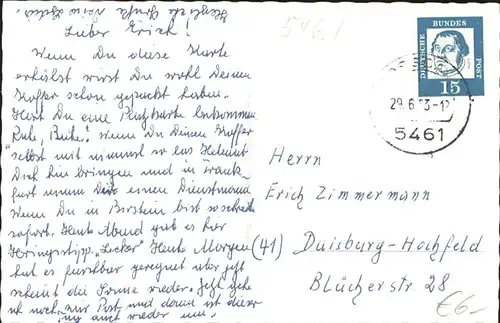 Herzliche Grüße Deine
Lieber Erich!
Wenn Du diese Karte
erhälst wirst Du wohl Deinen
Koffer schon gepackt haben.
Hast Du eine Platzkarte bekommen
Ruhe, Ruhe! Wenn Du Deinen Koffer
selbst mit nimmst so las Helmut
Dich hin bringen und in Frank-
furt nimm Dir einen Dienstmann
Wenn Du in Birstein bist so schreibe
sofort. Heute Abend gab es hier
Heringsstipp. "Lecker" Heute Morgen
hat es furchtbar geregnet aber jetzt
scheint die Sonne wieder. Jetzt gehe
ich noch zur Post und dann ist dieser
Tag auch wieder um.
5461
DEUTSCHE BUNDES POST
15
29.6.63-1
5461
Herrn
Erich Zimmermann
(41) Duisburg-Hochfeld
Blücherstr 28
€6-